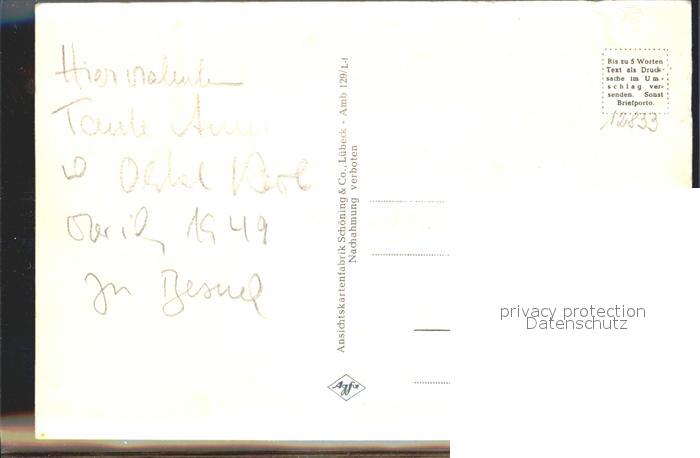 Hier
Tante
Onkel Karl
1949
zu Besuch
Ansichtskartenfabrik Schöning & Co., Lübeck - Amb 129/L-1
Nachahmung verboten
Agfa
Bis zu 5 Worten
Text als Druck-
sache im Um-
schlag ver-
senden. Sonst
Briefporto.
12833
privacy protection
Datenschutz